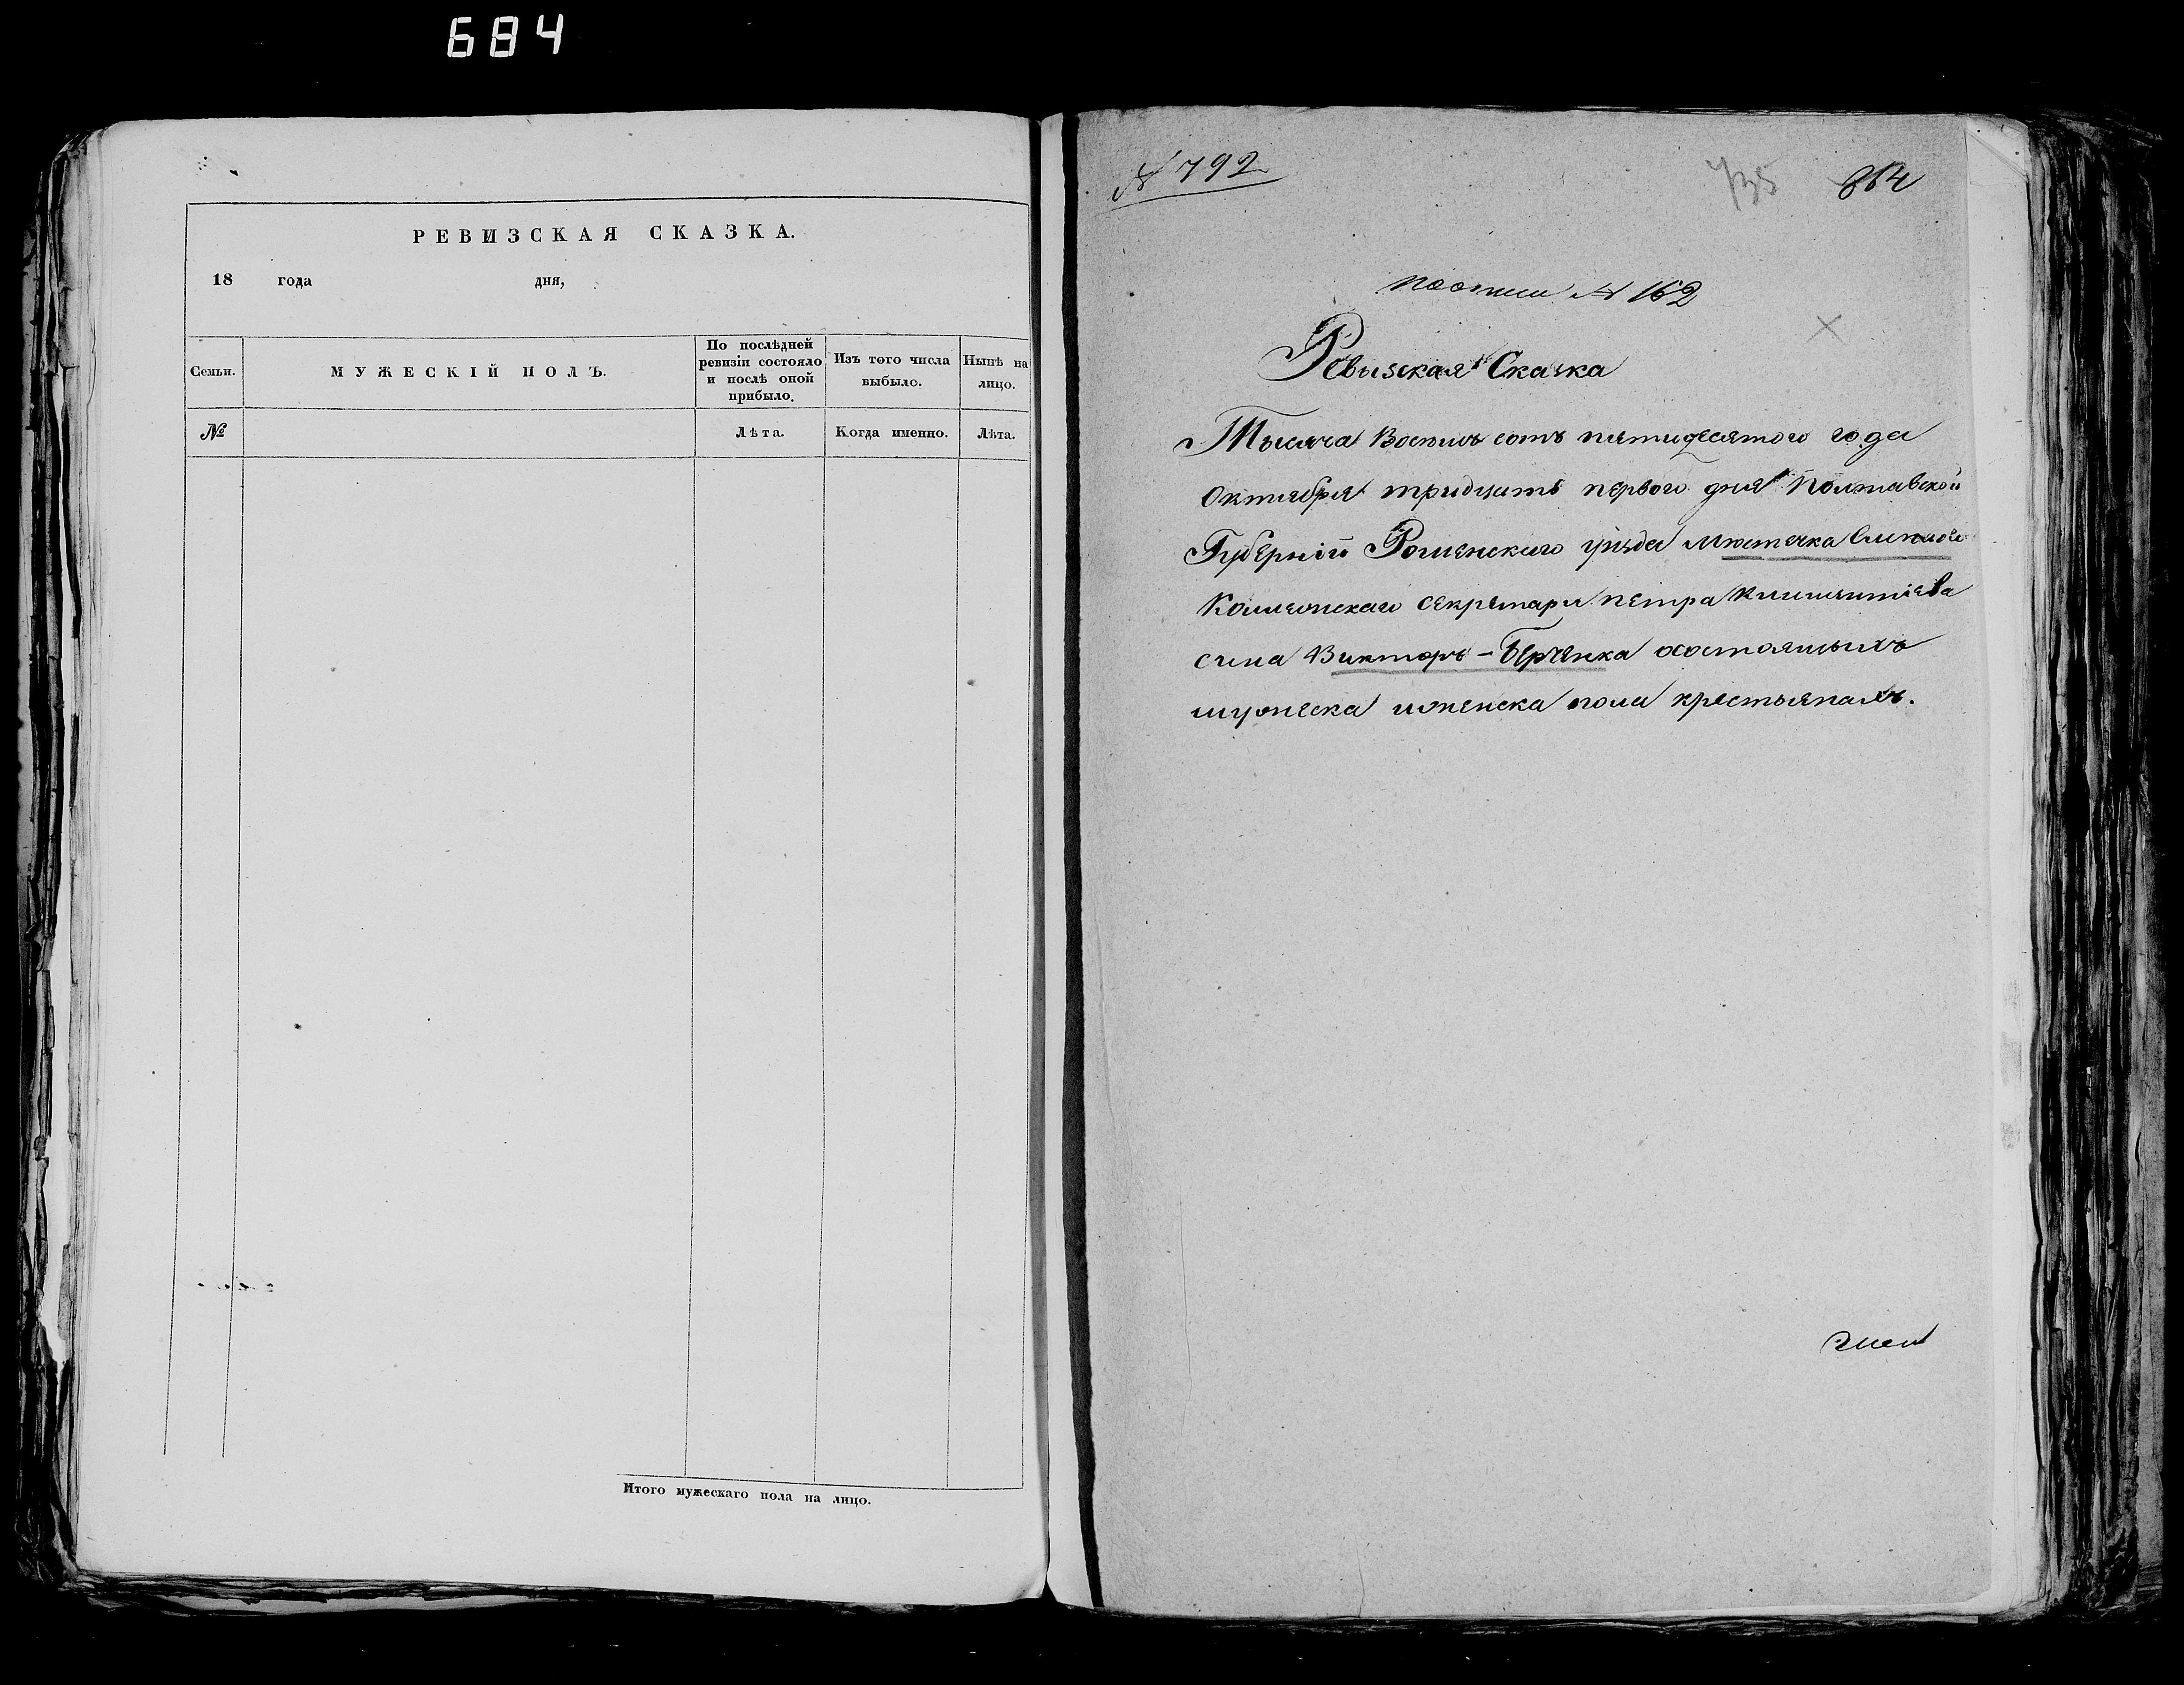 684
РЕВИЗСКАЯ СКАЗКА.
18 года дня,
Семьи.
МУЖЕСКІЙ ПОЛЪ.
По послѣдней ревизіи состояло и послѣ оной прибыло.
Изъ того числа выбыло.
Нынѣ на лицо.
№
Лѣта.
Когда именно.
Лѣта.
Итого мужескаго пола на лицо.
№ 792
735
864
№ 162
Ревизская Сказка
Тысяча Восемь сотъ пятидесятого года
Октября тридцать первого дня Полтавской
Губерніи Роменского уѣзда мѣстечка
секретаря Петра
сина Викторъ-Берченка
мужеска и женска пола крестьянахъ.